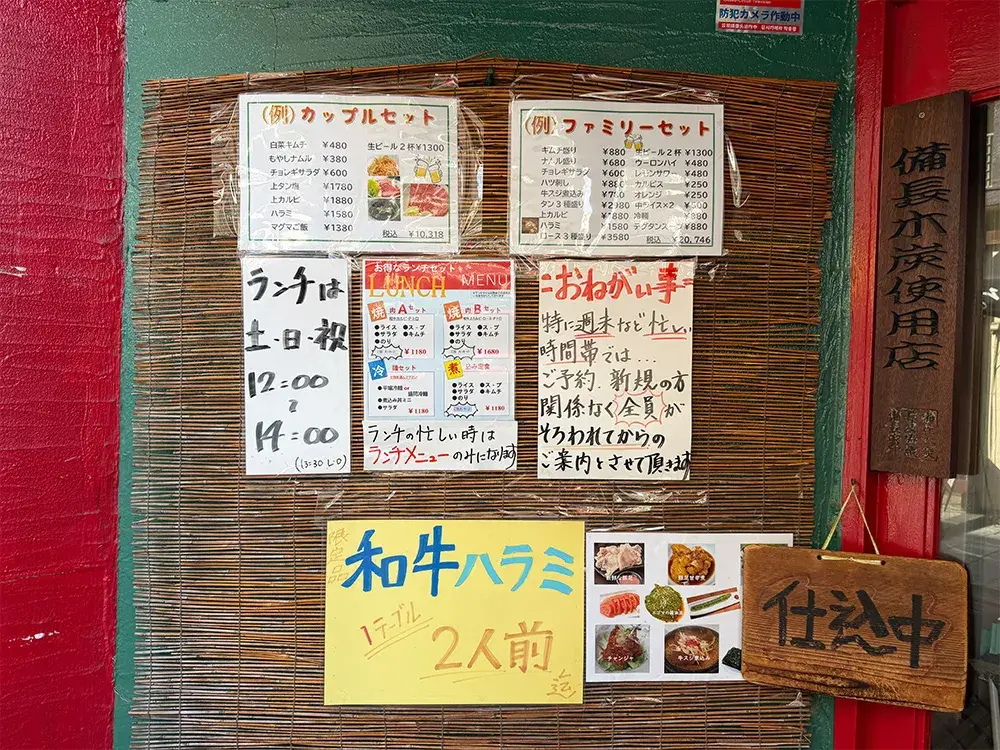 防犯カメラ作動中
(例) カップルセット
白菜キムチ ¥480
もやしナムル ¥380
チョレギサラダ ¥600
上タン塩 ¥1780
上カルビ ¥1880
ハラミ ¥1580
マグマご飯 ¥1380
生ビール2杯 ¥1300
税込 ¥10,318
(例) ファミリーセット
キムチ盛り ¥880
ナムル盛り ¥680
チョレギサラダ ¥600
ハツ刺し
牛スジ煮込み ¥780
タン3種盛り
上カルビ
ハラミ ¥1580
ロース3種盛り ¥3580
生ビール2杯 ¥1300
ウーロンハイ ¥480
レモンサワー ¥480
カルピス ¥250
オレンジ ¥250
中ライス×2
冷麺 ¥880
テグタンスープ ¥880
税込 ¥20,746
ランチは
土・日・祝
12:00
〜
14:00
(13:30 L.O)
お得なランチセット
LUNCH MENU
焼肉Aセット
●ライス ●スープ
●サラダ ●キムチ
●のり
¥1180
焼肉Bセット
●ライス ●スープ
●サラダ ●キムチ
●のり
¥1680
冷麺セット
●平壌冷麺 or
盛岡冷麺
●煮込み丼ミニ
●サラダ
¥1180
煮込み定食
●ライス ●スープ
●サラダ ●キムチ
●のり
¥1180
ランチの忙しい時は
ランチメニューのみになります
=おねがい事=
特に週末など忙しい
時間帯では…
ご予約、新規の方
関係なく全員が
そろわれてからの
ご案内とさせて頂きます
備長木炭使用店
限定品
和牛ハラミ
1テーブル
2人前
迄
チャンジャ
牛スジ煮込み
仕込中